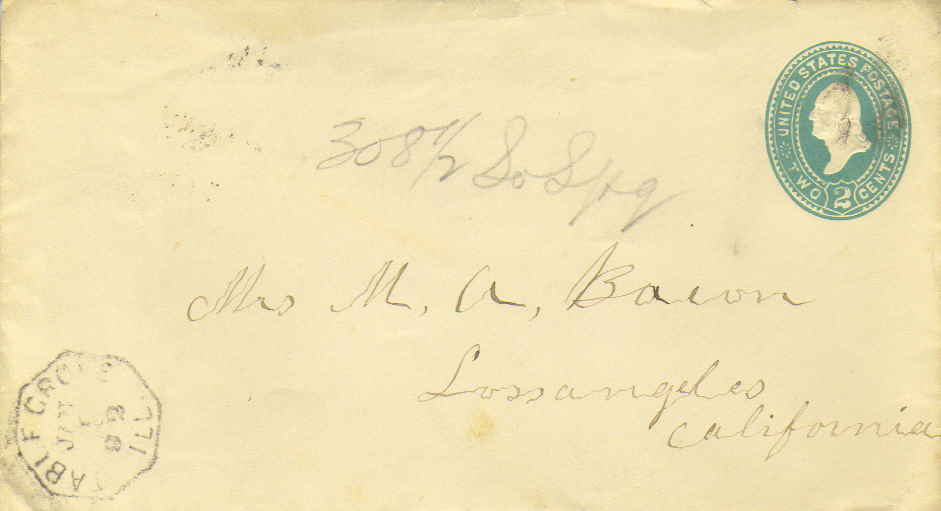 UNITED STATES POSTAGE
TWO 2 CENTS
308 1/2 So Spg
Mrs M. A. Bacon
Lossangeles
California
TABLE GROVE ILL
JAN
28